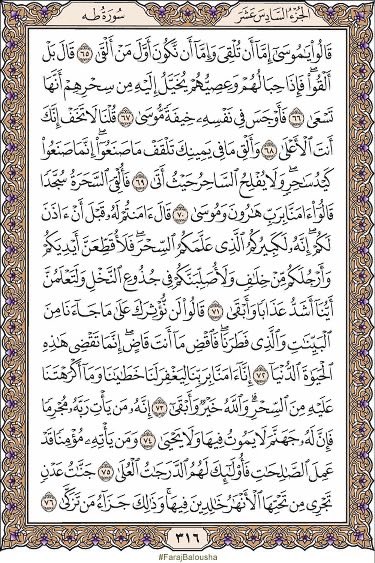 الجزء السادس عشر
سورة طه
قَالُوا۟ يَـٰمُوسَىٰٓ إِمَّآ أَن تُلْقِىَ وَإِمَّآ أَن نَّكُونَ أَوَّلَ مَنْ أَلْقَىٰ ٦٥ قَالَ بَلْ
أَلْقُوا۟ ۖ فَإِذَا حِبَالُهُمْ وَعِصِيُّهُمْ يُخَيَّلُ إِلَيْهِ مِن سِحْرِهِمْ أَنَّهَا
تَسْعَىٰ ٦٦ فَأَوْجَسَ فِى نَفْسِهِۦ خِيفَةً مُّوسَىٰ ٦٧ قُلْنَا لَا تَخَفْ إِنَّكَ
أَنتَ ٱلْأَعْلَىٰ ٦٨ وَأَلْقِ مَا فِى يَمِينِكَ تَلْقَفْ مَا صَنَعُوٓا۟ ۖ إِنَّمَا صَنَعُوا۟
كَيْدُ سَـٰحِرٍ ۖ وَلَا يُفْلِحُ ٱلسَّاحِرُ حَيْثُ أَتَىٰ ٦٩ فَأُلْقِىَ ٱلسَّحَرَةُ سُجَّدًا
قَالُوٓا۟ ءَامَنَّا بِرَبِّ هَـٰرُونَ وَمُوسَىٰ ٧٠ قَالَ ءَامَنتُمْ لَهُۥ قَبْلَ أَنْ ءَاذَنَ
لَكُمْ ۖ إِنَّهُۥ لَكَبِيرُكُمُ ٱلَّذِى عَلَّمَكُمُ ٱلسِّحْرَ ۖ فَلَأُقَطِّعَنَّ أَيْدِيَكُمْ
وَأَرْجُلَكُم مِّنْ خِلَـٰفٍ وَلَأُصَلِّبَنَّكُمْ فِى جُذُوعِ ٱلنَّخْلِ وَلَتَعْلَمُنَّ
أَيُّنَآ أَشَدُّ عَذَابًا وَأَبْقَىٰ ٧١ قَالُوا۟ لَن نُّؤْثِرَكَ عَلَىٰ مَا جَآءَنَا مِنَ
ٱلْبَيِّنَـٰتِ وَٱلَّذِى فَطَرَنَا ۖ فَٱقْضِ مَآ أَنتَ قَاضٍ ۖ إِنَّمَا تَقْضِى هَـٰذِهِ
ٱلْحَيَوٰةَ ٱلدُّنْيَآ ٧٢ إِنَّآ ءَامَنَّا بِرَبِّنَا لِيَغْفِرَ لَنَا خَطَـٰيَـٰنَا وَمَآ أَكْرَهْتَنَا
عَلَيْهِ مِنَ ٱلسِّحْرِ ۗ وَٱللَّهُ خَيْرٌ وَأَبْقَىٰٓ ٧٣ إِنَّهُۥ مَن يَأْتِ رَبَّهُۥ مُجْرِمًا
فَإِنَّ لَهُۥ جَهَنَّمَ لَا يَمُوتُ فِيهَا وَلَا يَحْيَىٰ ٧٤ وَمَن يَأْتِهِۦ مُؤْمِنًا قَدْ
عَمِلَ ٱلصَّـٰلِحَـٰتِ فَأُو۟لَـٰٓئِكَ لَهُمُ ٱلدَّرَجَـٰتُ ٱلْعُلَىٰ ٧٥ جَنَّـٰتُ عَدْنٍ
تَجْرِى مِن تَحْتِهَا ٱلْأَنْهَـٰرُ خَـٰلِدِينَ فِيهَا ۚ وَذَٰلِكَ جَزَآءُ مَن تَزَكَّىٰ ٧٦
٣١٦
#FarajBalousha